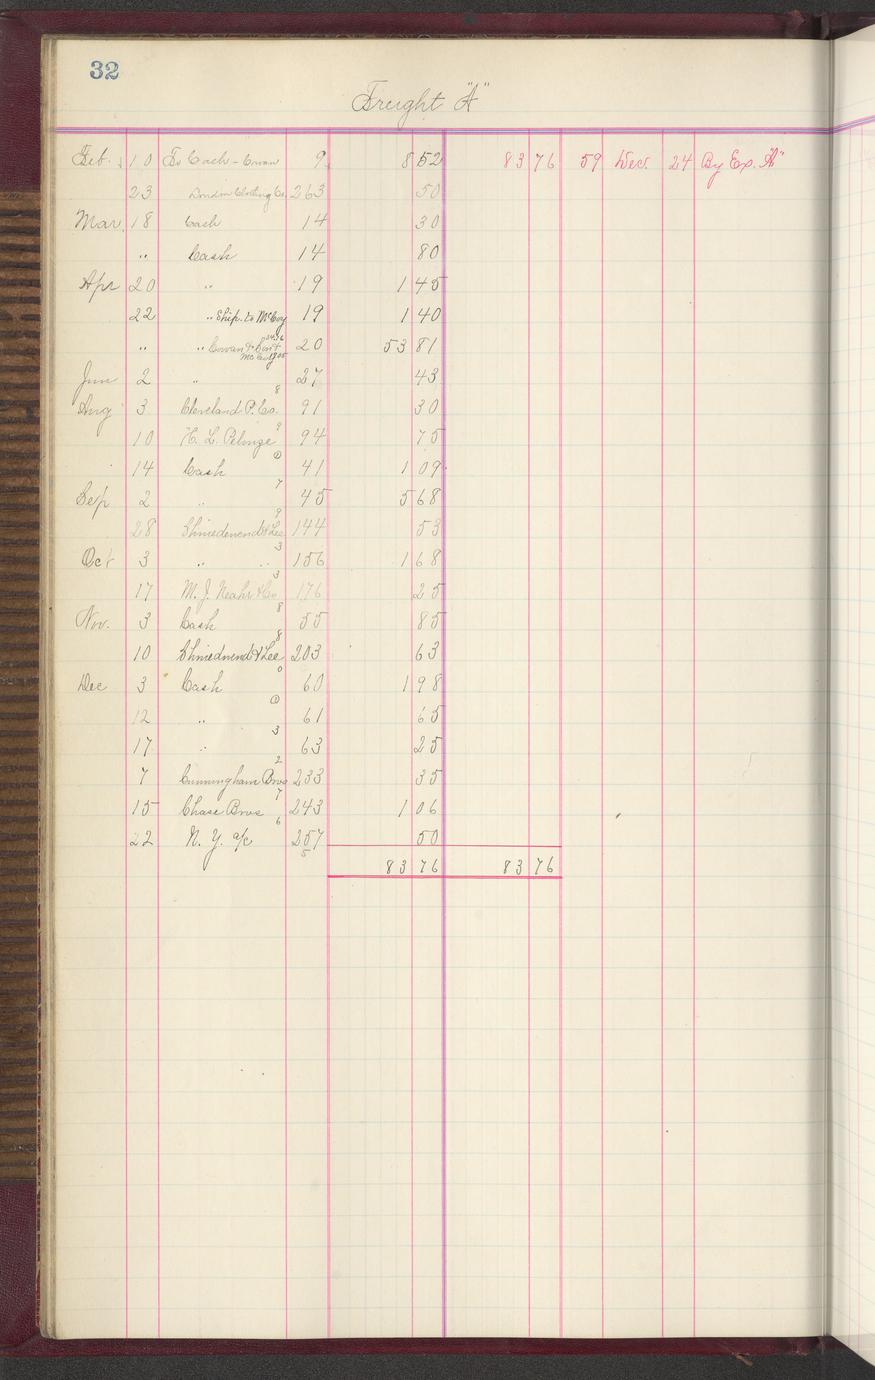 32
Freight "A"
Feb. 10 To Cash - Cowan 9 8 52 83 76 59 Dec. 24 By Ex. "A"
23 London Clothing Co. 263 50
Mar. 18 Cash 14 30
" Cash 14 80
Apr 20 " 19 1 45
22 " Ship. to McCoy 19 1 40
" " Cowan & 20 53 81
Jun 2 " 27 43
8
Aug 3 Cleveland P. Co. 91 30
9
10 H. L. 94 75
①
14 Cash 41 1 09
7
Sep 2 " 45 5 68
9
28 & Lee 144 53
3
Oct 3 " " 156 1 68
3
17 M. J. & Co 176 25
8
Nov. 3 Cash 55 85
8
10 & Lee 203 63
0
Dec 3 Cash 60 1 98
①
12 " 61 65
3
17 " 63 25
2
7 Cunningham Bros 233 35
7
15 Chase Bros 243 1 06
6
22 N. Y. a/c 257 50
5
83 76 83 76